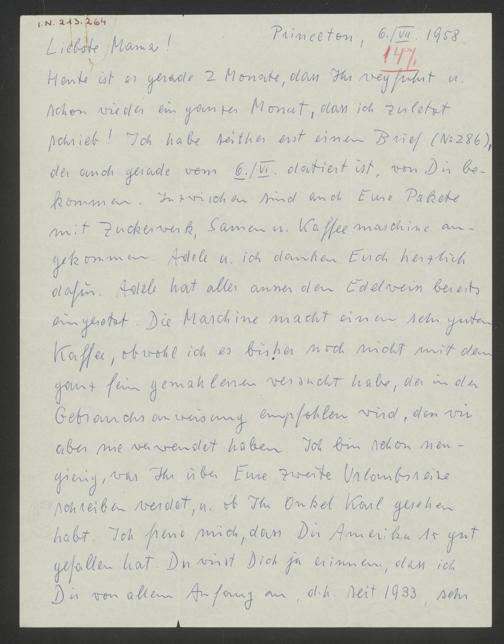 I.N. 213.264
Princeton, 6./VII. 1958
147.
Liebste Mama!
Heute ist es gerade 2 Monate, dass Ihr wegfuhrt u.
schon wieder ein ganzer Monat, dass ich zuletzt
schrieb! Ich habe seither erst einen Brief (No 286),
der auch gerade vom 6./VI. datiert ist, von Dir be-
kommen. Inzwischen sind auch Eure Pakete
mit Zuckerwerk, Samen u. Kaffeemaschine an-
gekommen. Adele u. ich danken Euch herzlich
dafür. Adele hat alles ausser dem Edelweis bereits
eingesetzt. Die Maschine macht einen sehr guten
Kaffee, obwohl ich es bisher noch nicht mit dem
ganz fein gemahlenen versucht habe, der in der
Gebrauchsanweisung empfohlen wird, den wir
aber nie verwendet haben. Ich bin schon neu-
gierig, was Ihr über Eure zweite Urlaubsreise
schreiben werdet, u. ob Ihr Onkel Karl gesehen
habt. Ich freue mich, dass Dir Amerika so gut
gefallen hat. Du wirst Dich ja erinnern, dass ich
Dir von allem Anfang an, d.h. seit 1933, sehr